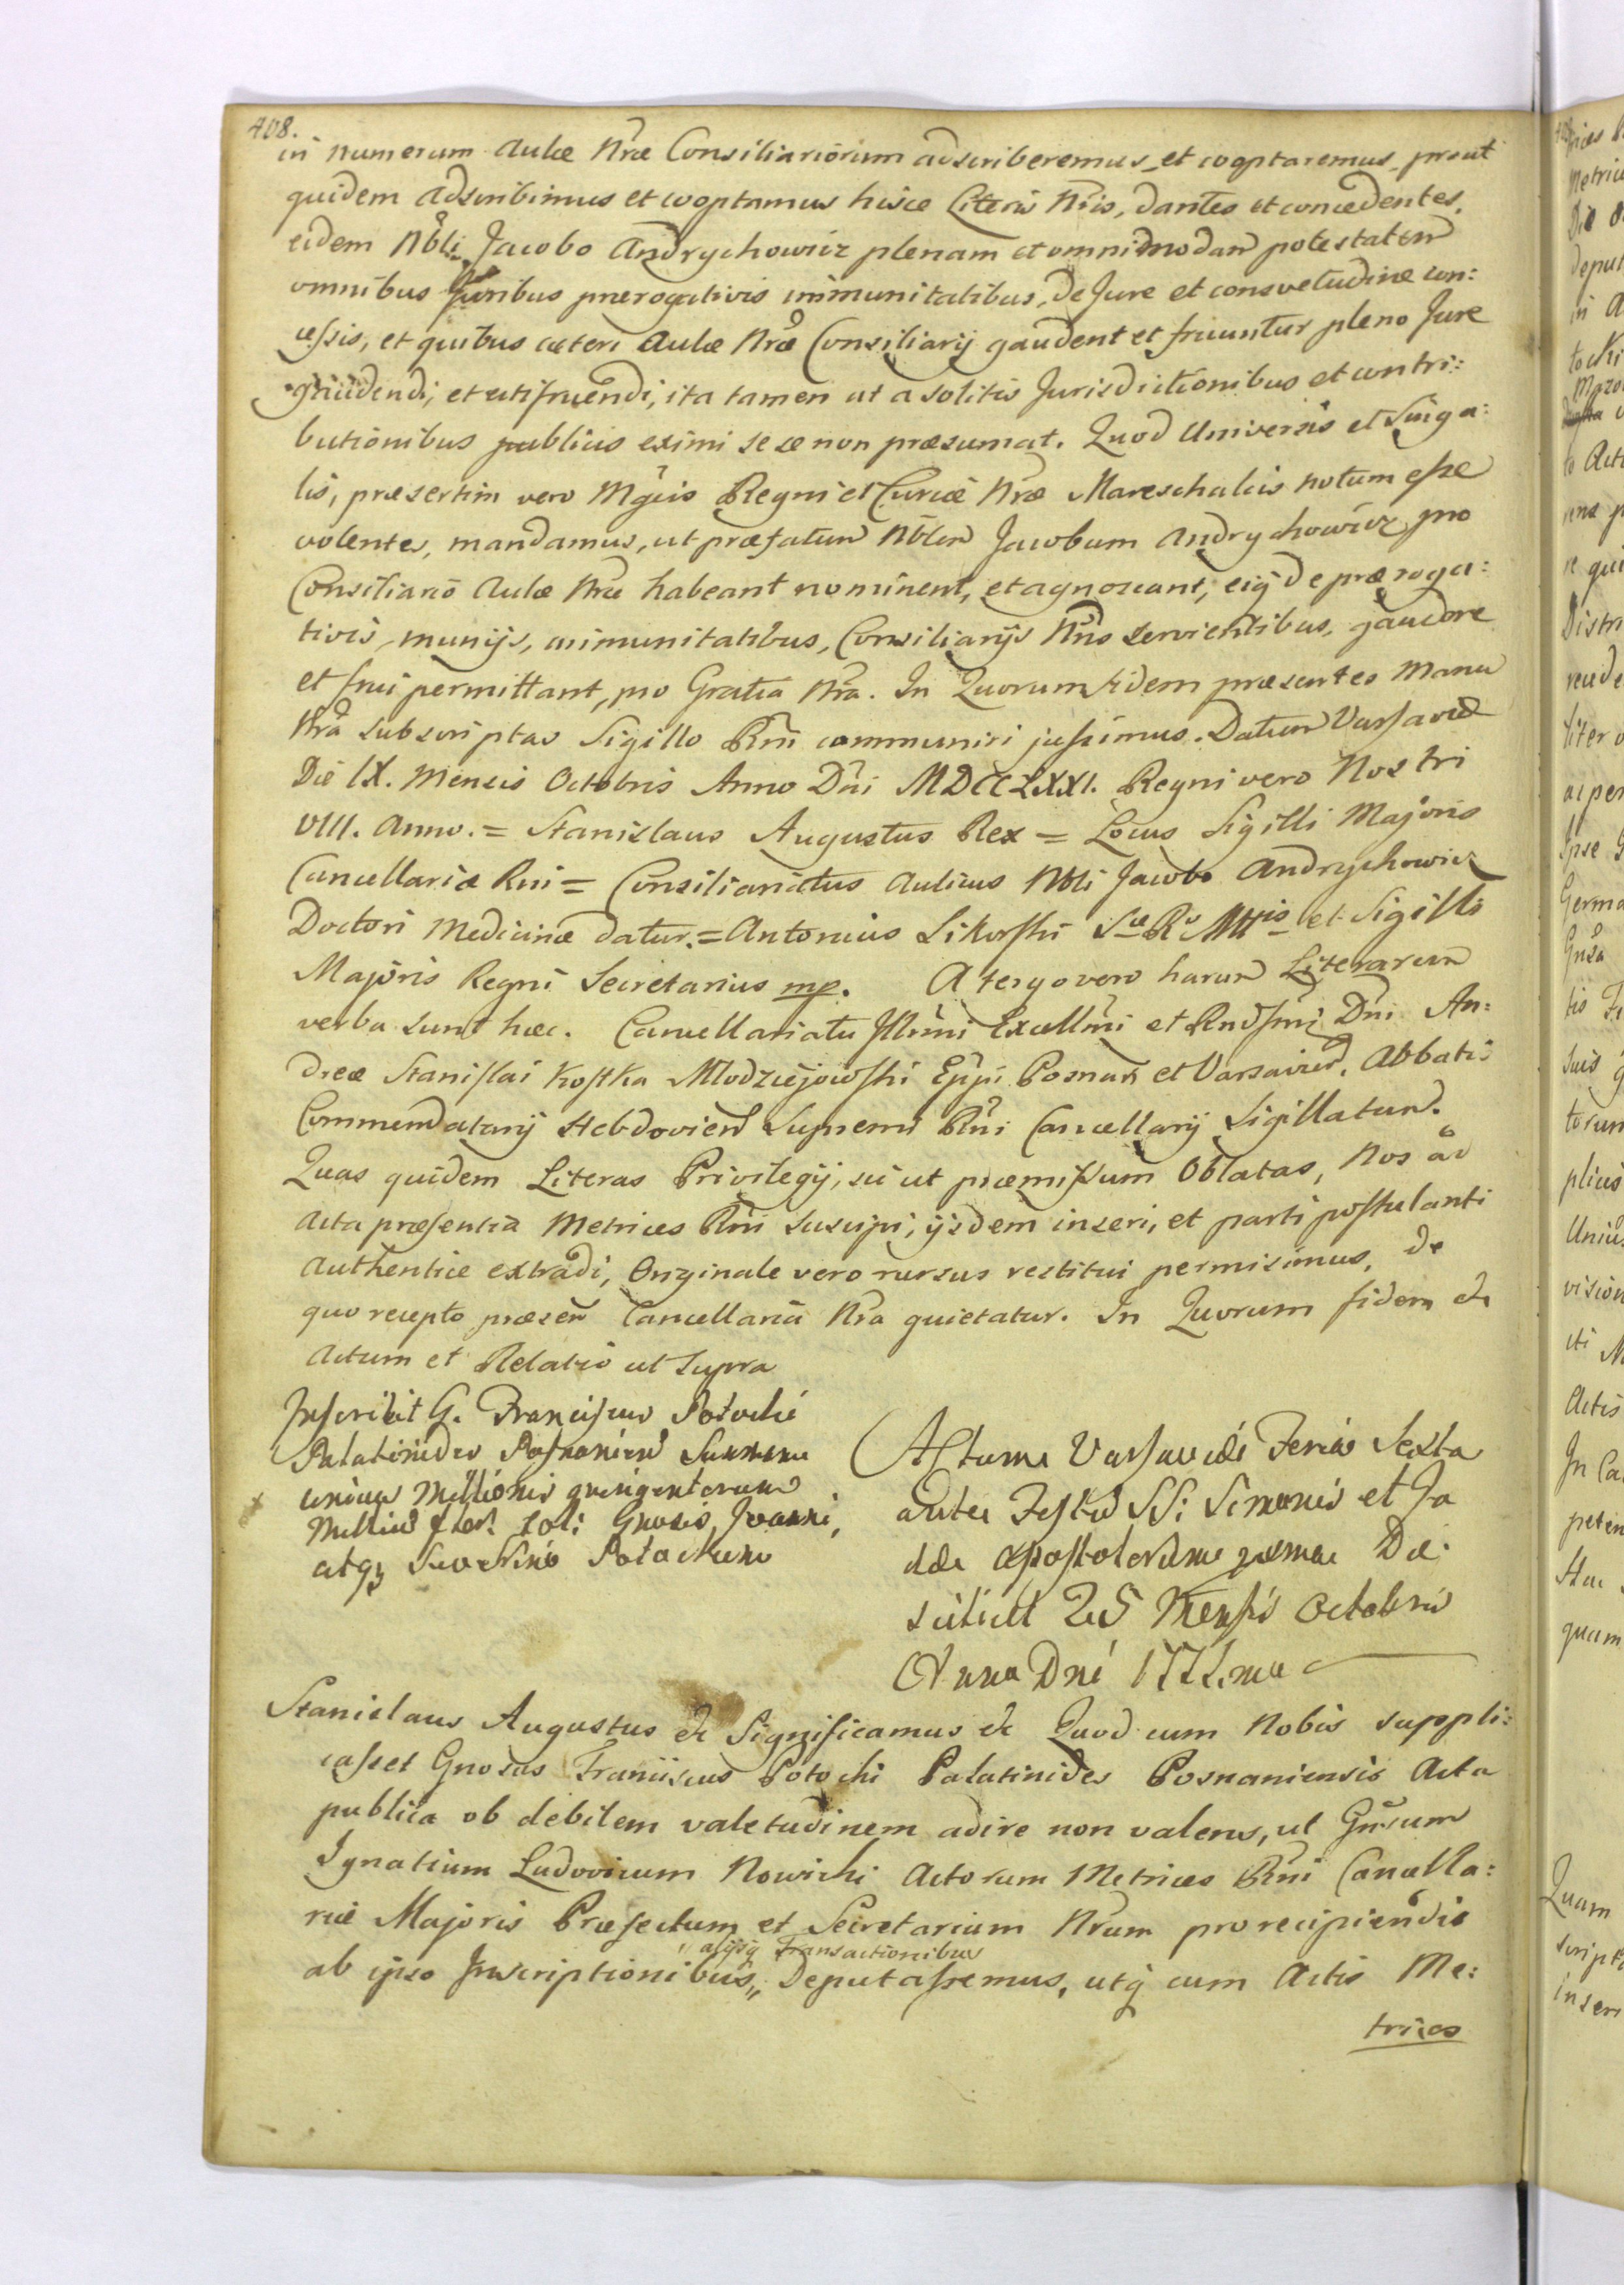 408.
in numerum Aulæ Nræ Consiliariorum adscriberemus et cooptaremus, prout
quidem adscribimus et cooptamus hisce Literis Nris, dantes et concedentes,
eidem Nbli Jacobo Andrychowicz plenam et omnimodam potestatem
omnibus Juribus prærogativis immunitatibus, de Jure et consvetudine con:
cessis, et quibus cæteri Aulæ Nræ Consiliarij gaudent et fruuntur pleno Jure
gaudendi, et utifruendi, ita tamen ut a solitis Jurisdictionibus et contri:
butionibus publicis eximi sese non præsumat. Quod Universis et Singu:
lis, præsertim vero Mgcis Regni et Curiæ Nræ Mareschalcis notum esse
volentes, mandamus, ut præfatum Nblem Jacobum Andrychowicz pro
Consiliario Aulæ Nræ habeant nominent, et agnoscant, eiq de præroga:
tivis, munijs, immunitatibus, Consiliarijs Nris servientibus, gaudere
et frui permittant, pro Gratia Nra. In Quorum fidem præsentes Manu
Nra subscriptas Sigillo Rni communiri jussimus. Datum Varsaviæ
Die IX. Mensis Octobris Anno Dni MDCCLXXI. Regni vero Nostri
VIII. Anno. = Stanislaus Augustus Rex = Locus Sigilli Majoris
Cancellariæ Rni = Consiliariatus Aulicus Nbli Jacobo Andrychowicz
Doctori Medicinæ datur. = Antonius Sikorski Sæ Ræ Mttis et Sigilli
Majoris Regni Secretarius mp. A tergo vero harum Literarum
verba sunt hæc. Cancellariatu Illmi Excellmi et Rndssmi Dni An:
dreæ Stanislai Kostka Młodziejowski Eppi Posnan et Varsavien, Abbatis
Commendatarij Hebdovien Supremi Rni Cancellarij Sigillatum.
Quas quidem Literas Privilegij, sic ut præmissum Oblatas, Nos ad
Acta præsentia Metrices Rni suscipi, ijsdem inseri, et parti postulanti
authentice extradi, Originale vero rursus restitui permisimus, de
quo recepto præsen Cancellaria Nra quietatur. In Quorum fidem &
Actum et Relatio ut Supra
Inscribit G. Franciscus Potocki
Palatinides Posnanien Summam
unius Millionis quingentorum
Millium flor. Pol: Gnosis, Joanni,
atq Severino Potockim
Actum Varsaviæ Feria Sexta
ante Festum SS: Simonis et Ju
dæ Apostolorum proxima Die
scilicet 25 Mensis Octobris
Anno Dni 1771.mo
Stanislaus Augustus & Significamus & Quod cum Nobis suppli:
casset Gnosus Franciscus Potocki Palatinides Posnaniensis Acta
publica ob debilem valetudinem adire non valens, ut Gnosum
Ignatium Ludovicum Nowicki Actorum Metrices Rni Cancella:
riæ Majoris Præfectum et Secretarium Nrum pro recipiendis
" alijsq Transactionibus
ab ipso Inscriptionibus, Deputassemus, utq cum Actis Me:
trices